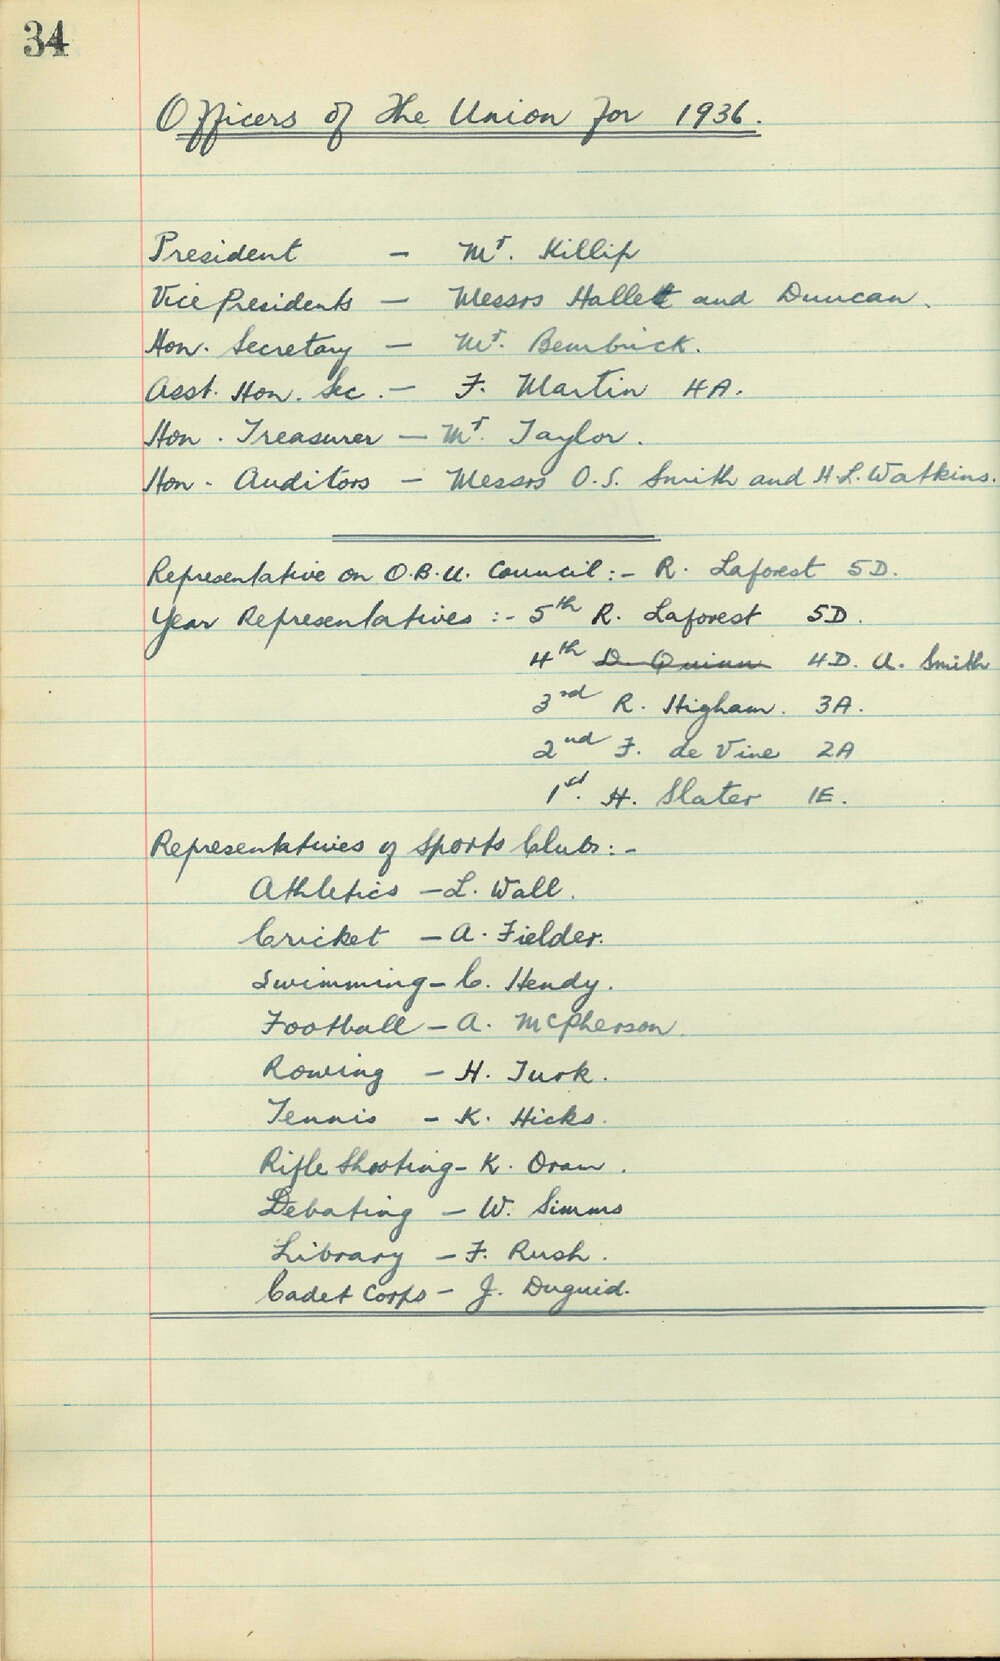 34
Officers of the Union for 1936.
President - Mr. Killip
Vice Presidents - Messrs Hallett and Duncan.
Hon. Secretary - Mr. Bembrick.
Asst. Hon. Sec. - F. Martin 4A.
Hon. Treasurer - Mr. Taylor.
Hon. Auditors - Messrs O.S. Smith and H.L. Watkins.
Representative on O.B.U. Council:- R. Laforest 5D.
Year Representatives :- 5th R. Laforest 5D.
4th D. Quinn 4D. A. Smith
3rd R. Higham. 3A.
2nd F. de Vine 2A
1st. H. Slater 1E.
Representatives of Sports Clubs:-
Athletics - L. Wall.
Cricket - A. Fielder.
Swimming - C. Hendy.
Football - A. McPherson.
Rowing - H. Turk.
Tennis - K. Hicks.
Rifle Shooting - K. Oram.
Debating - W. Simms
Library - F. Rush.
Cadet Corps - J. Duguid.